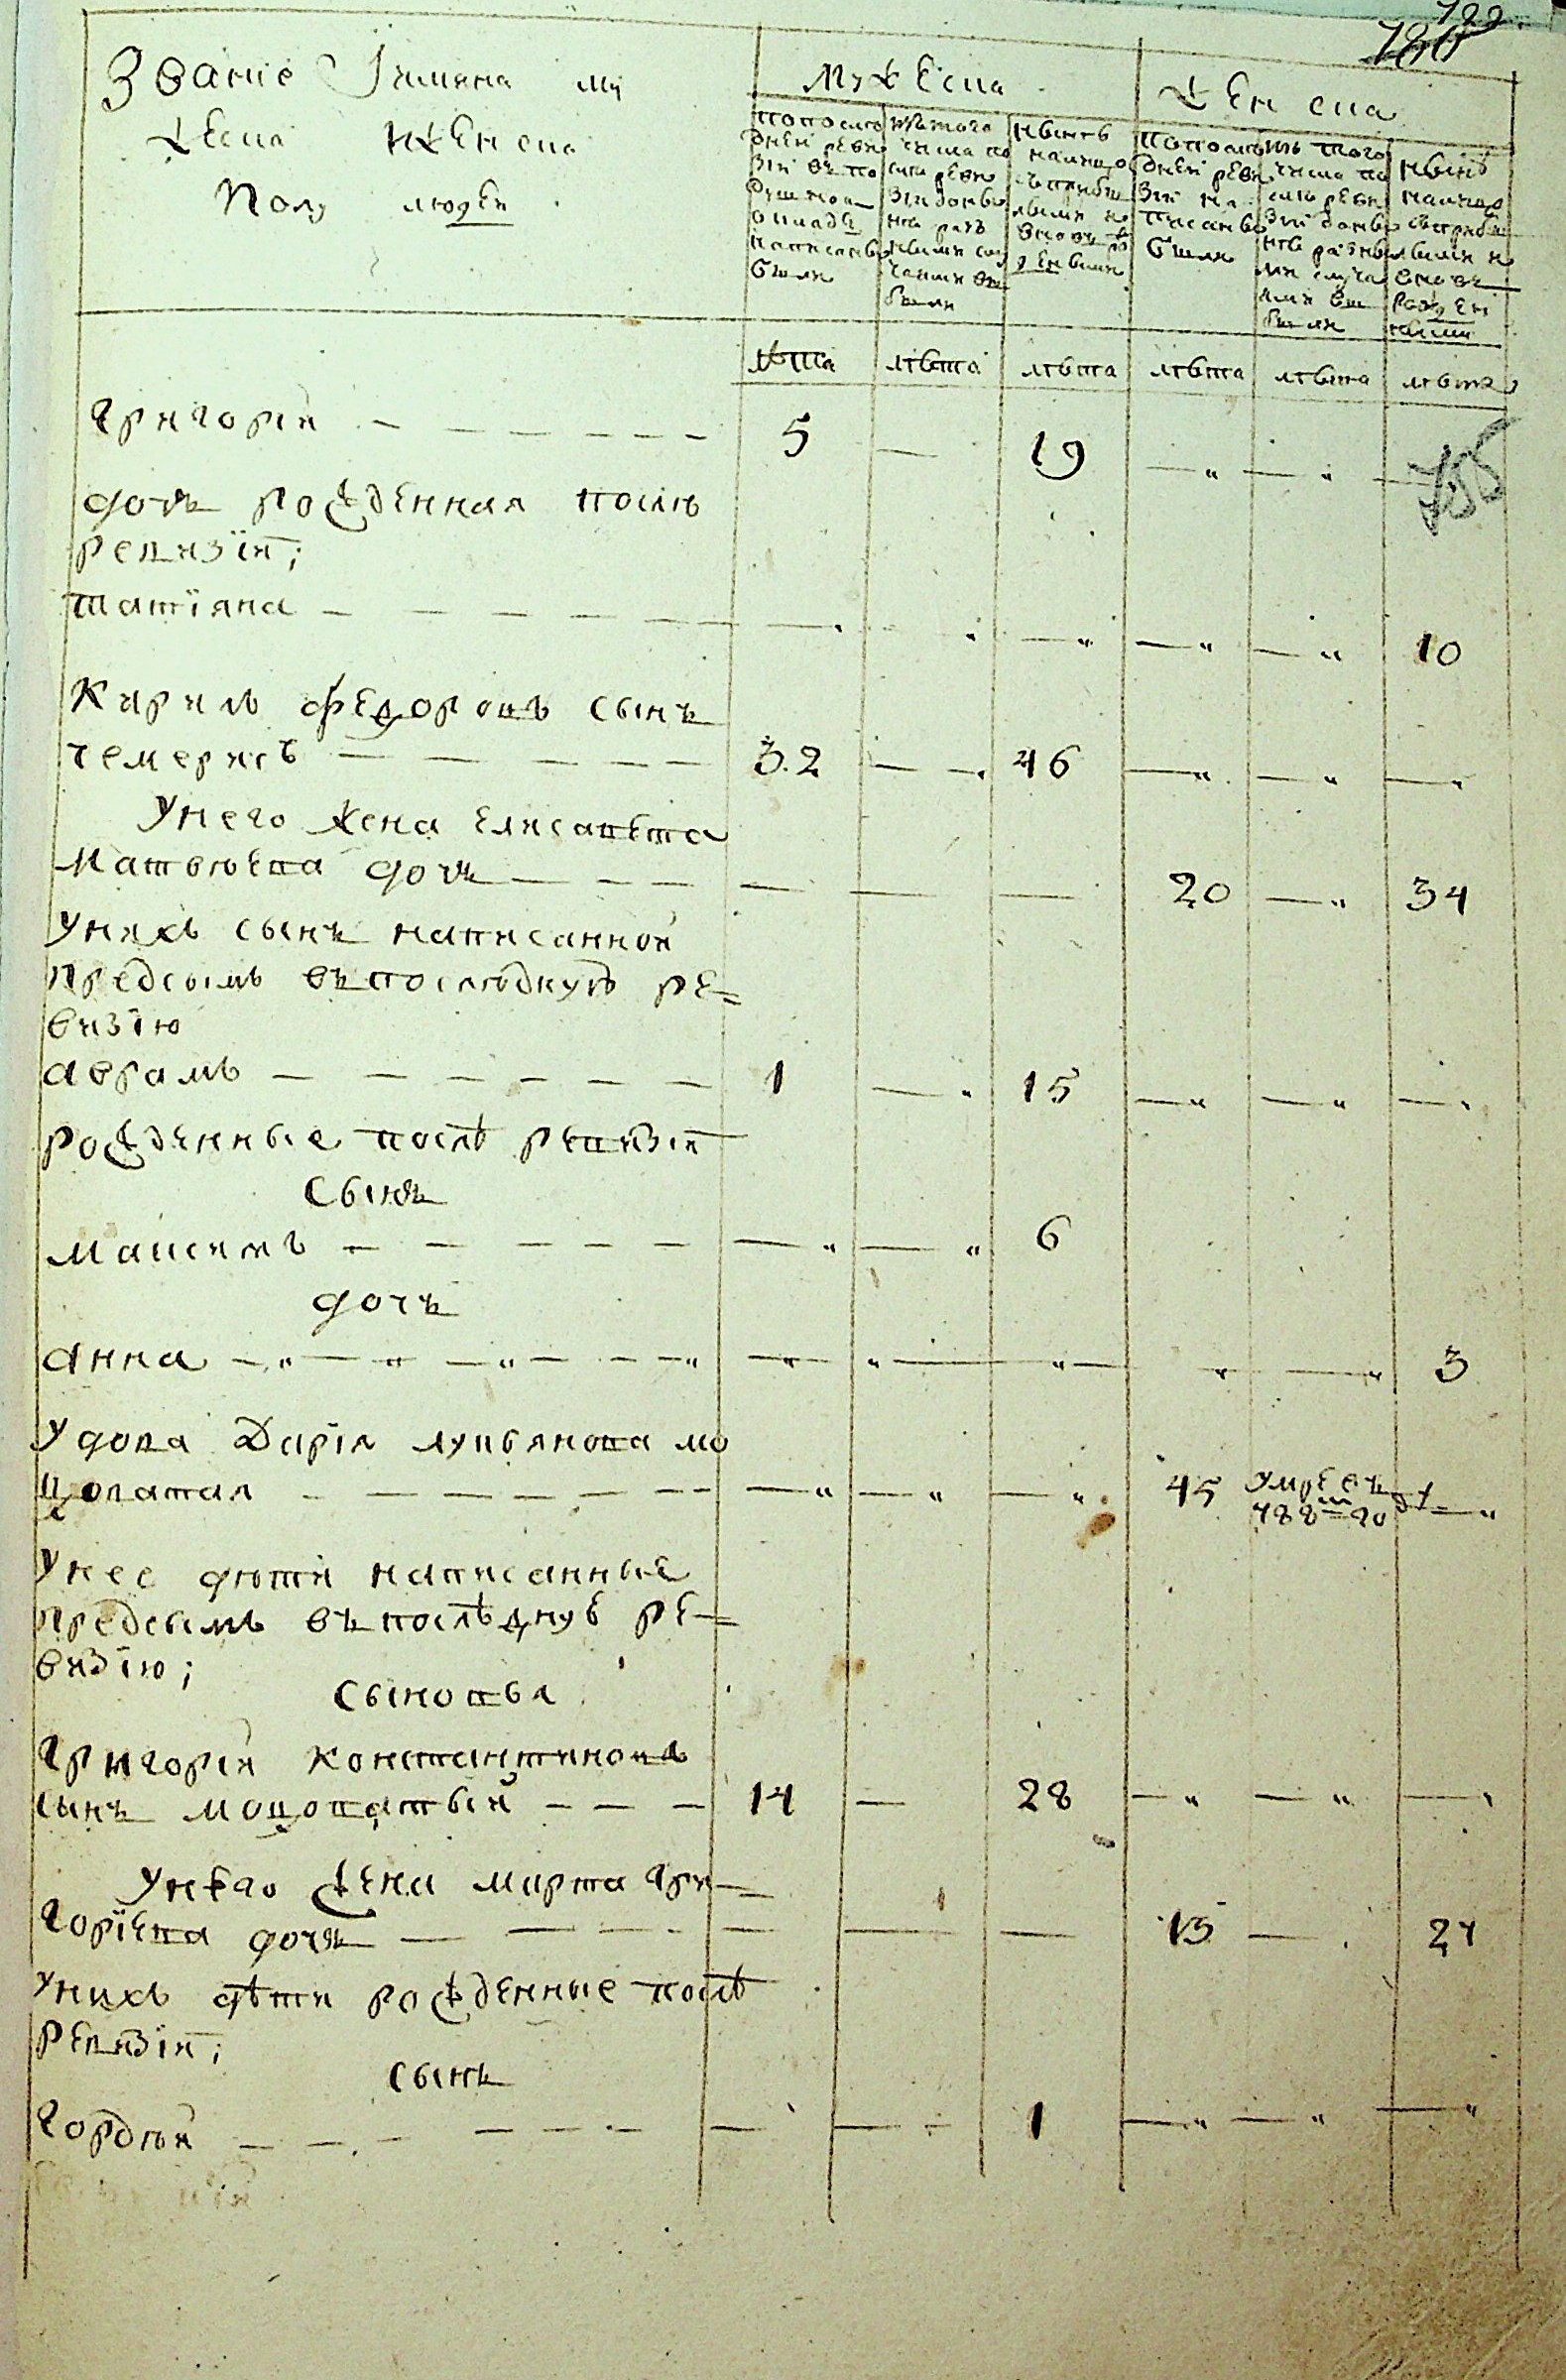 Званіе Іимяна му
жеска ижен ска
полу людей
мужеска
женска
попослѣ
дней реви
зіи въ по
душномъ
окладе
написанъ
были
изтого
числа по
слѣ реви
зіи до ны
не раз
ными слу
чаями вы
были
нынѣ
на лицо
съ прибы
лыми и
вновь ро
жденными
попослѣ
дней реви
зіи на
писанъ
были
изъ того
числа по
слѣ реви
зіи до ны
нѣ разны
ми случа
ями вы
были
нынѣ
на лицо
съ прибы
лыми и
вновь
рожден
ными
лѣта лѣта лѣта лѣта лѣта лѣта
Григорій 5 — 19 — —
дочь рожденная послѣ
ревизіи;
татіяна — — — — — 10
Кирилъ Федоровъ сынъ
чемерисъ 32 — 46 — — —
Унего жена Елисавета
Матвѣева дочь — — — 20 — 34
Унихъ сынъ написанной
предсимъ въ послѣдную ре=
визію
аврамъ 1 — 15 — — —
рожденные послѣ ревизіи
Сынъ
максимъ — — 6
дочь
анна — — — — — 3
Удова Дарія лукьянова мо
цоватая — — — 45 умре въ 788=м го ду —
Унее дѣти написанные
предсимъ въ послѣднуѣ ре=
визію;
Сыновья
Григорій Константиновъ
сынъ моцоватый 14 — 28 — — —
Унего жена марта Гри=
горіева дочь — — — 13 — 27
Унихъ дѣти рожденные послѣ
ревизіи;
сынъ
Гордѣй — — 1 — — —